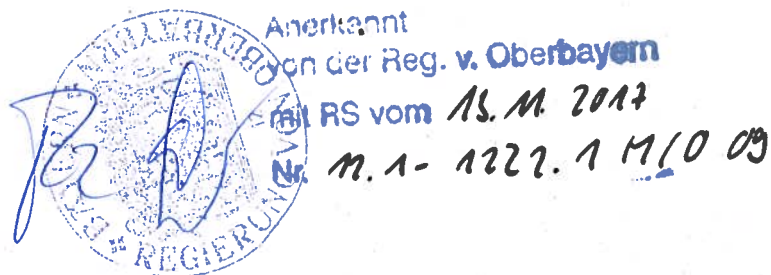 Anerkannt
von der Reg. v. Oberbayern
mit RS vom 13.11.2017
Nr. 12.1-1222.1 M/O 09
* REGIERUNG VON OBERBAYERN